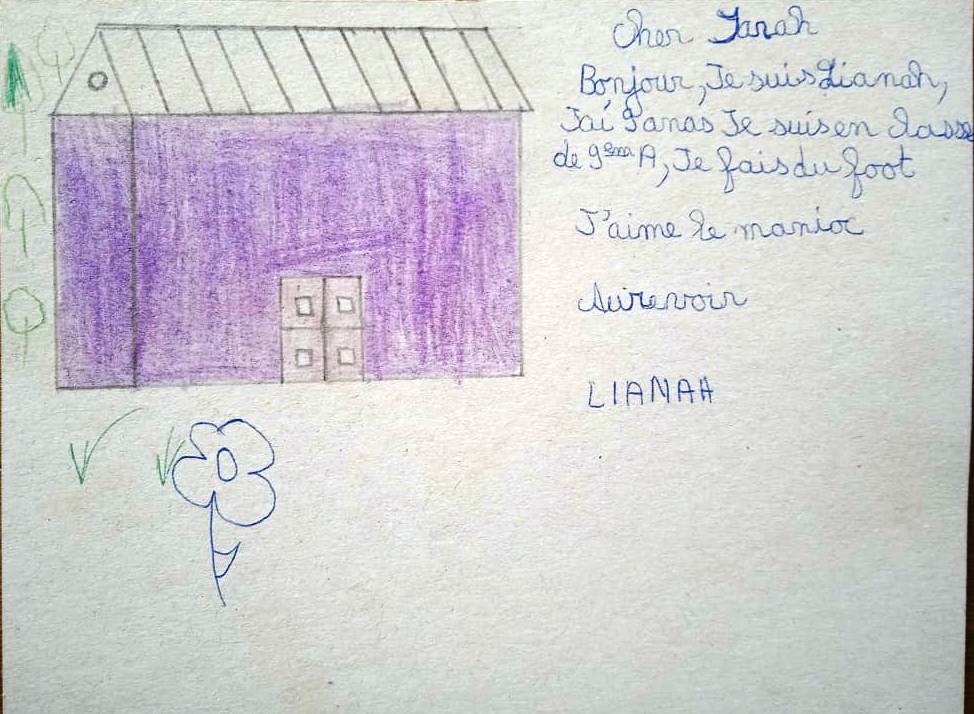 Cher Sarah
Bonjour, Je suis Lianah,
J'ai 9 anas Je suis en classe
de 9ème A, Je fais du foot
J'aime le manioc
Aurevoir
LIANAH